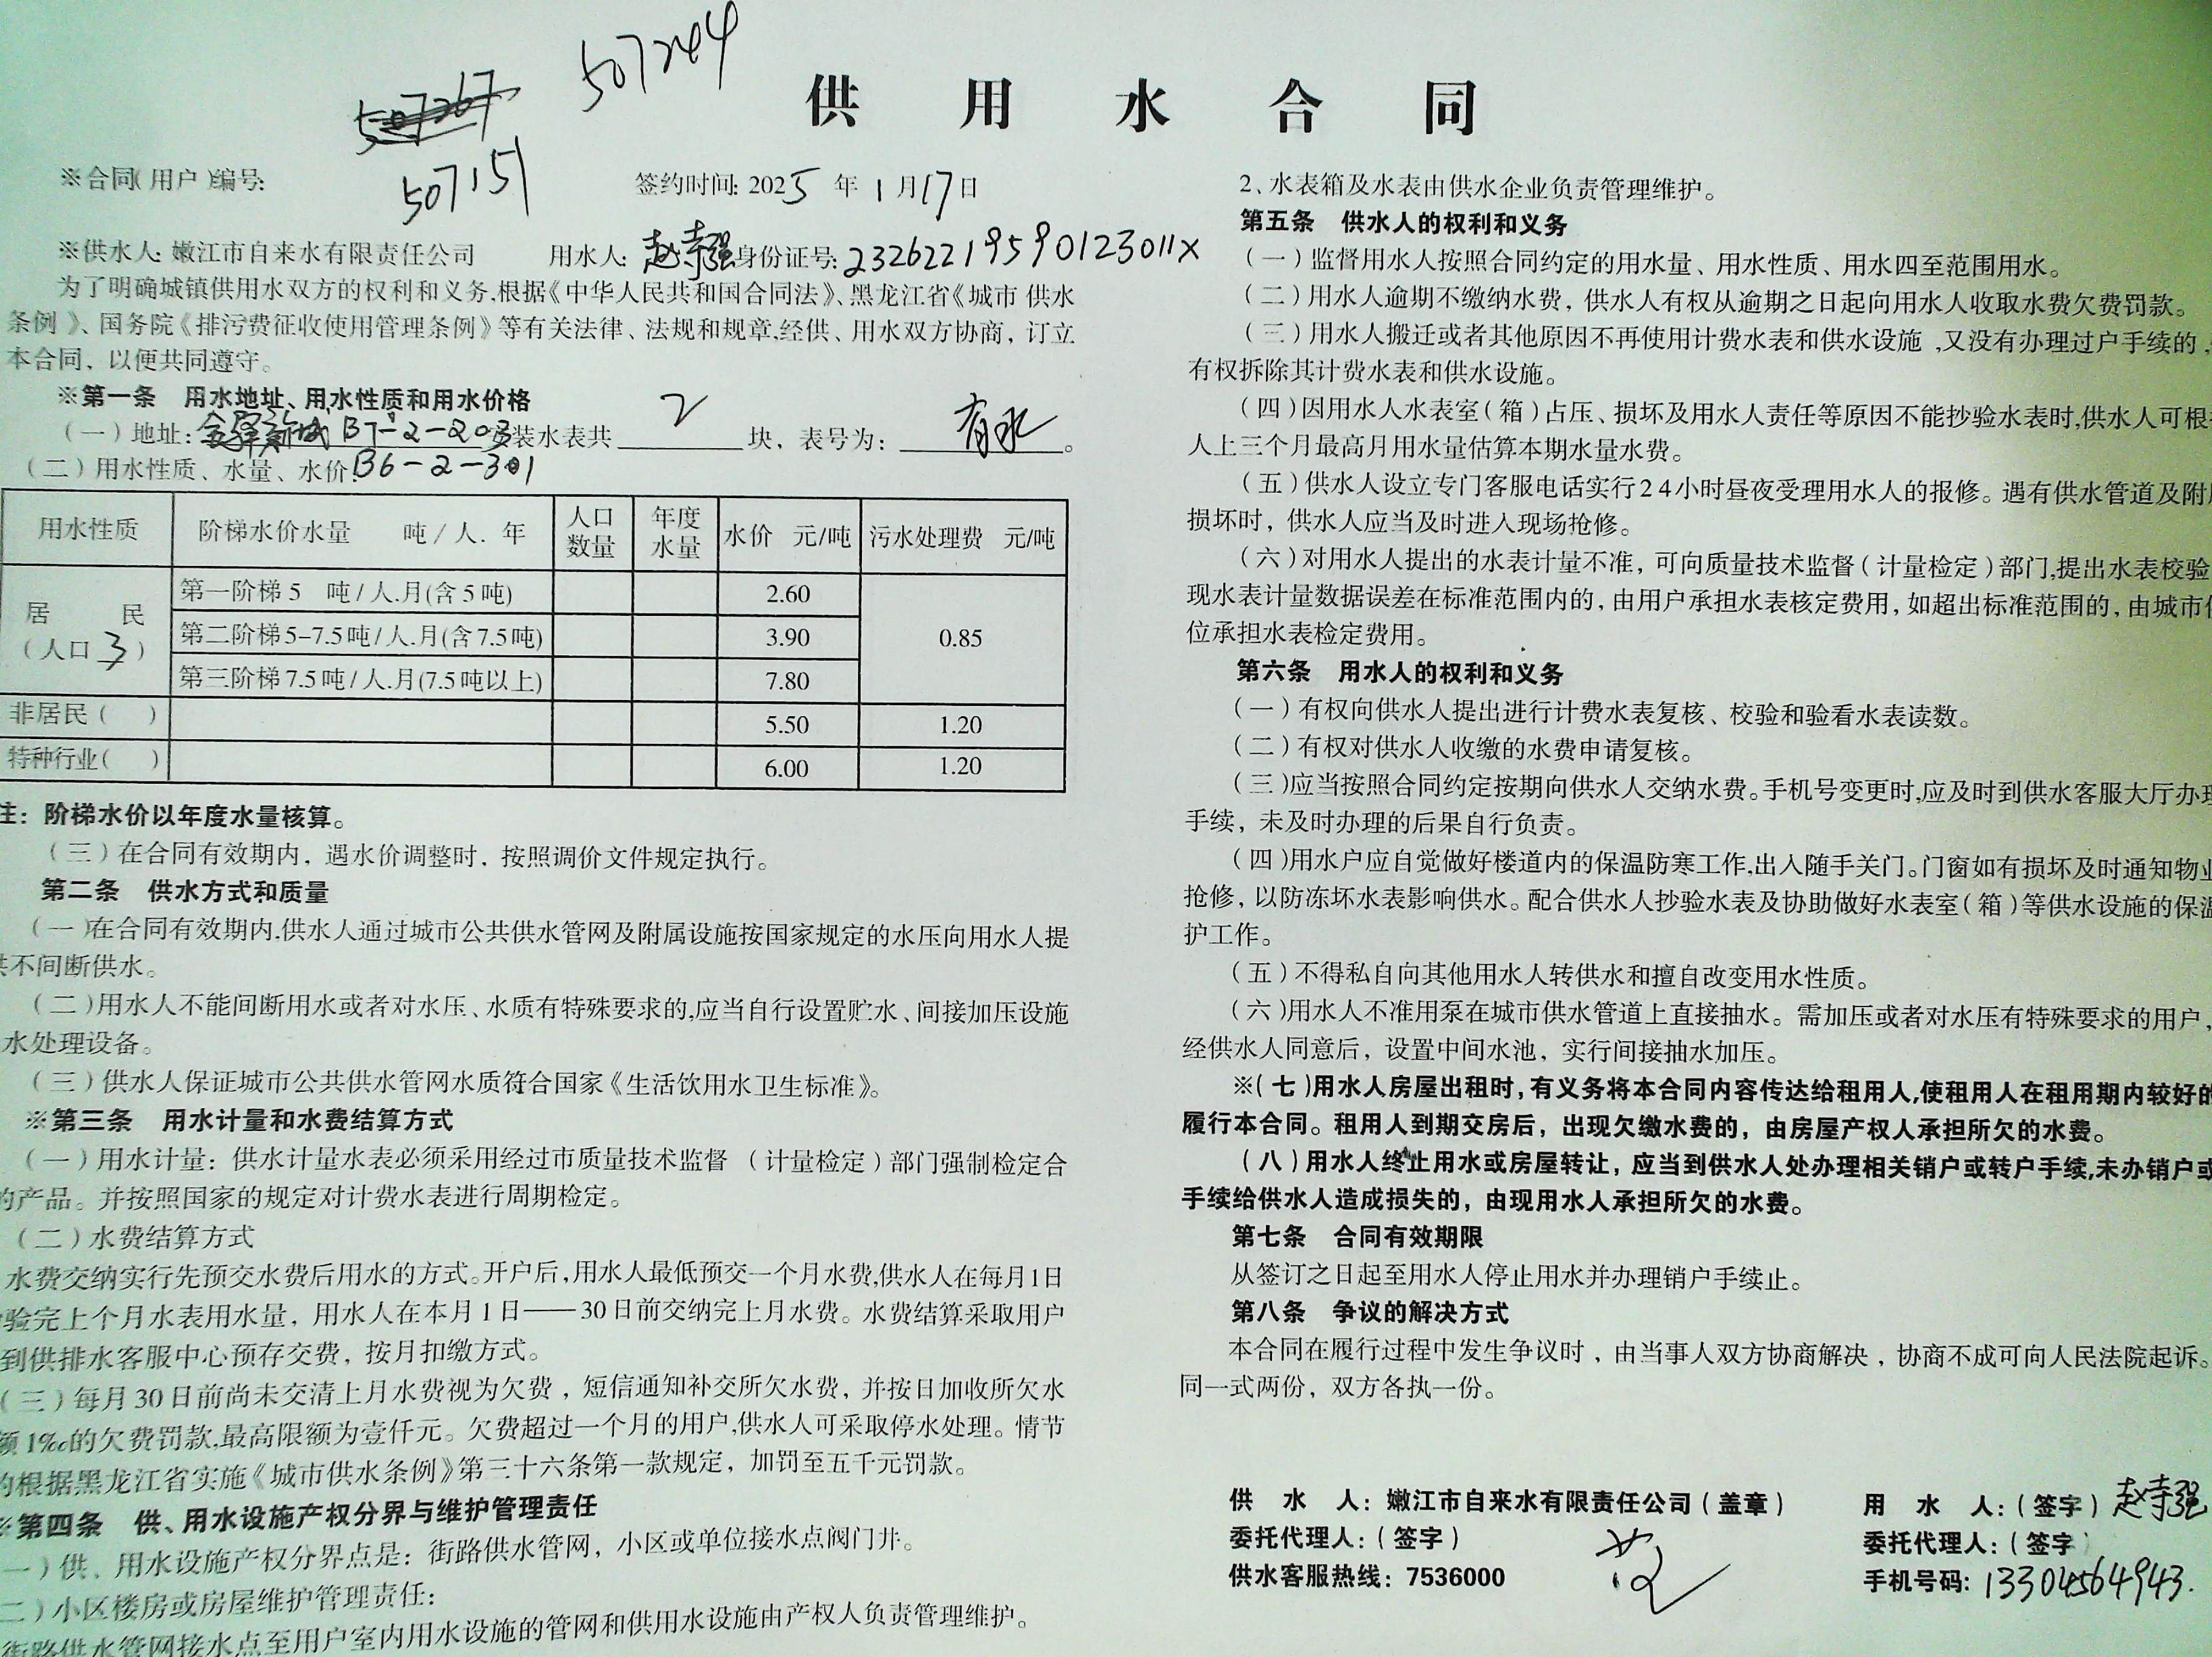 507244
507267
507151
供 用 水 合 同
※合同(用户)编号:
签约时间: 2025 年 1 月 17 日
※供水人: 嫩江市自来水有限责任公司 用水人: 赵寺强 身份证号: 23262219590123011X
为了明确城镇供用水双方的权利和义务,根据《中华人民共和国合同法》、黑龙江省《城市 供水
条例》、国务院《排污费征收使用管理条例》等有关法律、法规和规章,经供、用水双方协商, 订立
本合同, 以便共同遵守。
※第一条 用水地址、用水性质和用水价格
(一)地址: B7-2-203 安装水表共 2 块, 表号为: 有水。
(二)用水性质、水量、水价: B6-2-301
用水性质 阶梯水价水量 吨/人. 年 人口数量 年度水量 水价 元/吨 污水处理费 元/吨
居 民 (人口 3 )
第一阶梯 5 吨/人.月(含 5 吨) 2.60
第二阶梯 5-7.5吨/人.月(含 7.5吨) 3.90 0.85
第三阶梯 7.5 吨/人.月(7.5 吨以上) 7.80
非居民( ) 5.50 1.20
特种行业( ) 6.00 1.20
注: 阶梯水价以年度水量核算。
(三)在合同有效期内, 遇水价调整时, 按照调价文件规定执行。
第二条 供水方式和质量
(一)在合同有效期内,供水人通过城市公共供水管网及附属设施按国家规定的水压向用水人提
供不间断供水。
(二)用水人不能间断用水或者对水压、水质有特殊要求的,应当自行设置贮水、间接加压设施
水处理设备。
(三)供水人保证城市公共供水管网水质符合国家《生活饮用水卫生标准》。
※第三条 用水计量和水费结算方式
(一)用水计量: 供水计量水表必须采用经过市质量技术监督 (计量检定)部门强制检定合
的产品。并按照国家的规定对计费水表进行周期检定。
(二)水费结算方式
水费交纳实行先预交水费后用水的方式。开户后,用水人最低预交一个月水费,供水人在每月1日
验完上个月水表用水量, 用水人在本月 1 日——30 日前交纳完上月水费。水费结算采取用户
到供排水客服中心预存交费, 按月扣缴方式。
(三)每月 30 日前尚未交清上月水费视为欠费, 短信通知补交所欠水费, 并按日加收所欠水
额 1‰的欠费罚款,最高限额为壹仟元。欠费超过一个月的用户,供水人可采取停水处理。情节
的根据黑龙江省实施《城市供水条例》第三十六条第一款规定, 加罚至五千元罚款。
※第四条 供、用水设施产权分界与维护管理责任
一)供、用水设施产权分界点是: 街路供水管网, 小区或单位接水点阀门井。
二)小区楼房或房屋维护管理责任:
街路供水管网接水点至用户室内用水设施的管网和供用水设施由产权人负责管理维护。
2、水表箱及水表由供水企业负责管理维护。
第五条 供水人的权利和义务
(一)监督用水人按照合同约定的用水量、用水性质、用水四至范围用水。
(二)用水人逾期不缴纳水费, 供水人有权从逾期之日起向用水人收取水费欠费罚款。
(三)用水人搬迁或者其他原因不再使用计费水表和供水设施,又没有办理过户手续的,
有权拆除其计费水表和供水设施。
(四)因用水人水表室(箱)占压、损坏及用水人责任等原因不能抄验水表时,供水人可根
人上三个月最高月用水量估算本期水量水费。
(五)供水人设立专门客服电话实行24小时昼夜受理用水人的报修。遇有供水管道及附
损坏时, 供水人应当及时进入现场抢修。
(六)对用水人提出的水表计量不准, 可向质量技术监督(计量检定)部门,提出水表校验
现水表计量数据误差在标准范围内的, 由用户承担水表核定费用, 如超出标准范围的, 由城市
位承担水表检定费用。
第六条 用水人的权利和义务
(一)有权向供水人提出进行计费水表复核、校验和验看水表读数。
(二)有权对供水人收缴的水费申请复核。
(三)应当按照合同约定按期向供水人交纳水费。手机号变更时,应及时到供水客服大厅办理
手续, 未及时办理的后果自行负责。
(四)用水户应自觉做好楼道内的保温防寒工作,出入随手关门。门窗如有损坏及时通知物业
抢修, 以防冻坏水表影响供水。配合供水人抄验水表及协助做好水表室(箱)等供水设施的保温
护工作。
(五)不得私自向其他用水人转供水和擅自改变用水性质。
(六)用水人不准用泵在城市供水管道上直接抽水。需加压或者对水压有特殊要求的用户,
经供水人同意后, 设置中间水池, 实行间接抽水加压。
※(七)用水人房屋出租时, 有义务将本合同内容传达给租用人,使租用人在租用期内较好的
履行本合同。租用人到期交房后, 出现欠缴水费的, 由房屋产权人承担所欠的水费。
(八)用水人终止用水或房屋转让, 应当到供水人处办理相关销户或转户手续,未办销户或
手续给供水人造成损失的, 由现用水人承担所欠的水费。
第七条 合同有效期限
从签订之日起至用水人停止用水并办理销户手续止。
第八条 争议的解决方式
本合同在履行过程中发生争议时, 由当事人双方协商解决, 协商不成可向人民法院起诉。
同一式两份, 双方各执一份。
供 水 人: 嫩江市自来水有限责任公司(盖章) 用 水 人: (签字) 赵寺强
委托代理人: (签字) 委托代理人: (签字)
供水客服热线: 7536000 手机号码: 13304564943.